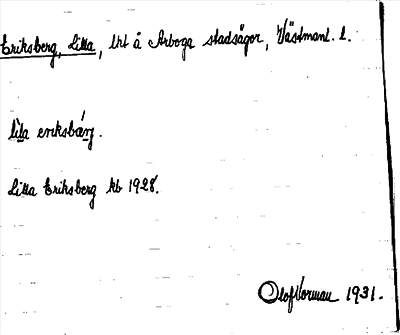 Eriksberg, Lilla, lht å Arboga stadsägor, Västmanl. l.
lìla eriksbár̨j.
Lilla Eriksberg kb 1928.
Olof Norman 1931.